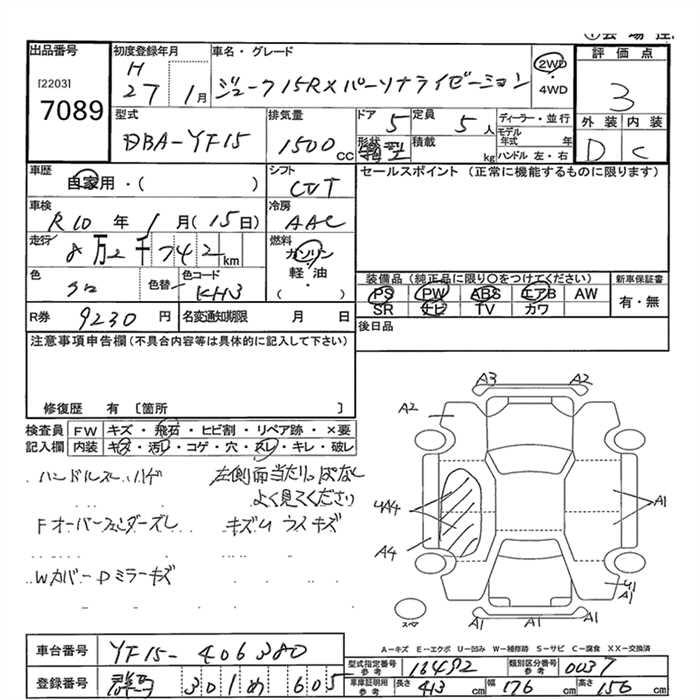 出品番号
[2203]
7089
初度登録年月
H
27 1月
車名・グレード
ジューク 15RX パーソナライゼーション
2WD
・
4WD
評価点
3
外装 内装
D C
型式
DBA-YF15
排気量
1500 CC
ドア 5
形状
定員 5 人
積載 kg
ディーラー・並行
モデル年式 年
ハンドル 左・右
車歴
自家用・( )
シフト
CVT
セールスポイント (正常に機能するものに限ります)
車検
R10 年 1 月 (15 日)
冷房
AAC
走行
8万2千742 km
燃料
ガソリン
軽・油
・( )
色
クロ
色替
色コード
KH3
装備品 (純正品に限り○をつけてください)
PS PW ABS エアB AW
SR ナビ TV カワ
新車保証書
有・無
R券 9230 円
名変通知期限 月 日
後日品
注意事項申告欄(不具合内容等は具体的に記入して下さい)
修復歴 有〔箇所 〕
検査員 FW キズ・飛石・ヒビ割・リペア跡・×要
記入欄 内装 キズ・汚レ・コゲ・穴・スレ・キレ・破レ
ハンドルスレ ハゲ
左側面当たりっぱなし
よく見てください
Fオーバーフェンダーズレ
キズU ウスキズ
Wカバー Dミラーキズ
A3 A2
A2
4A4 A1
A4
A1
A1 A1
スペア
車台番号 YF15-406380
登録番号 301 605
A－キズ E－エクボ U－凹み W－補修跡 S－サビ C－腐食 XX－交換済
型式指定番号 参考 18492 類別区分番号 参考 0037
車庫証明用 参考 長さ 413 cm 幅 176 cm 高さ 156 cm